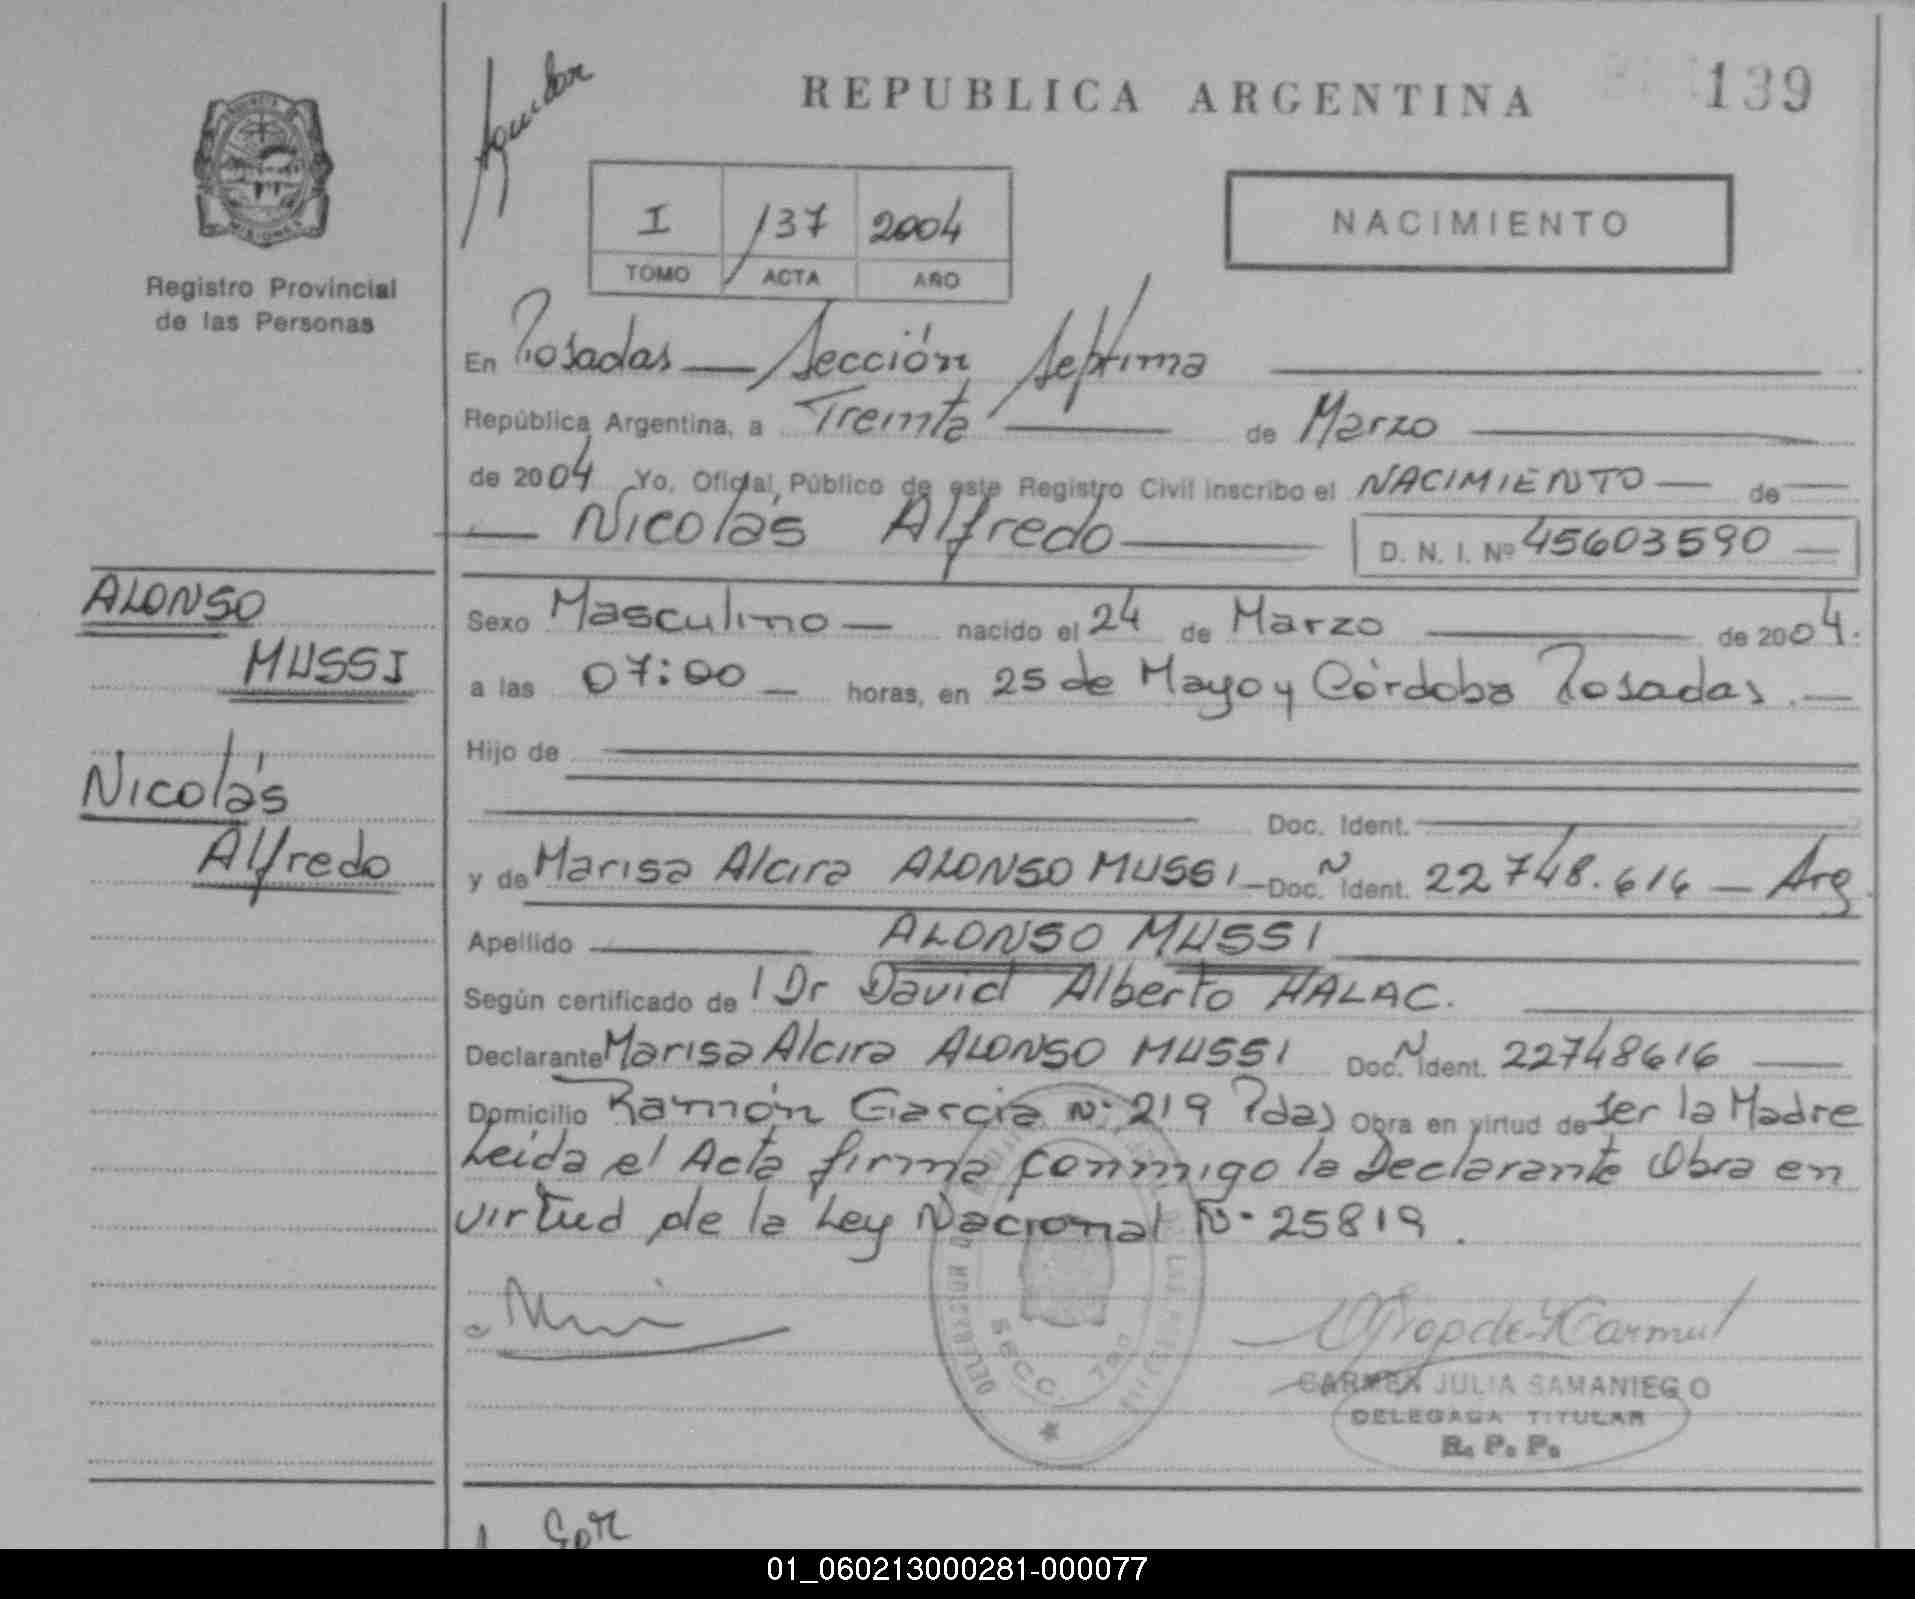 Aguilar
REPUBLICA ARGENTINA
139
MISIONES
Registro Provincial
de las Personas
I 137 2004
TOMO ACTA AÑO
NACIMIENTO
En Posadas — Sección Septima
República Argentina, a Treinta de Marzo
de 2004 Yo, Oficial Público de este Registro Civil inscribo el NACIMIENTO — de
Nicolás Alfredo
D. N. I. Nº 45603590
ALONSO
MUSSI
Nicolás
Alfredo
Sexo Masculino — nacido el 24 de Marzo de 2004.
a las 07:00 — horas, en 25 de Mayo y Córdoba Posadas. —
Hijo de
Doc. Ident.
y de Marisa Alcira ALONSO MUSSI — Doc. N Ident. 22748.616 — Arg
Apellido ALONSO MUSSI
Según certificado de l Dr David Alberto HALAC.
Declarante Marisa Alcira ALONSO MUSSI Doc. N Ident. 22748616
Domicilio Ramón Garcia Nº 219 Pdas Obra en virtud de ser la Madre
Leida el Acta firma conmigo la Declarante Obra en
virtud de la Ley Nacional Nº 25819.
SECC. 7MA
CARMEN JULIA SAMANIEGO
DELEGADA TITULAR
R. P. P.
01_060213000281-000077